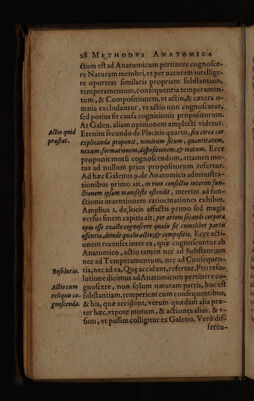 28 METHODVS ANATOMICA
ctum est ad Anatomicum pertinere cognosce-
re Naturam membri, vt per naturam intellige-
re oporteat similaris propriam substantiam,
temperamentum, consequentia temperamen-
tum, & Compositionem, vt actio, & cætera o-
mnia excludantur, vt actio non cognoscatur,
sed potius sit causa cognitionis propositorum.
Actio quid At Galen. aliam opinionem amplecti videtur.
præstat. Etenim secundo de Placitis quarto, sex circa cor
explicanda proponit, nimirum situm, quantitatem,
nexum, formationem, dispositionem, & motum. Ecce
proponit motũ cognoscendum, attamen mo-
tus ad nullum prius propositorum refertur.
Ad hæc Galenus 9. de Anatomicis administra-
tionibus primo ait, in viuo conspicitur interim fun-
ctionem ipsam manifeste ostendit, interim ad fun-
ctionis inuentionem ratiocinationes exhibet.
Amplius 2. de locis affectis primo sed magis
versus finem capitis ait, per artem secandi corpora
opus esse exacte cognoscere qualis sit cuiuslibet partis
essentia, deinde qualis actio, & compositio. Ecce acti-
onem recenset inter ea, quæ cognoscuntur ab
Anatomico, actio tamen nec ad Substantiam
nec ad Temperamentum, nec ad Consequen-
Resolutio. tia, nec ad ea, Quæ accidunt, refertur. Pro reso-
lutione dicimus ad Anatomicum pertinere co-
Actio cum gnoscere, non solum naturam partis, hoc est
reliquis co- substantiam, temperiem cum consequentibus,
gnoscenda. & his, quæ accidunt, verum quædam alia præ-
ter hæc, vt pote motum, & actiones alias, & v-
sum, vt passim colligitur ex Galeno. Verũ dif-
feren-